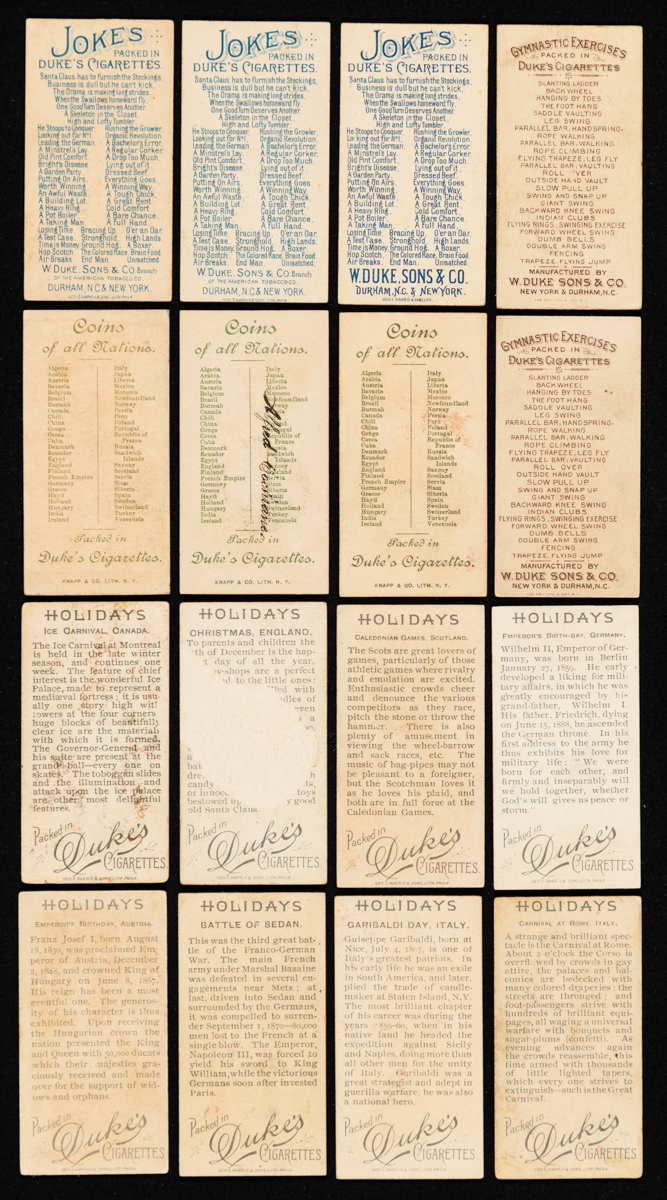 JOKES
PACKED IN
DUKE'S CIGARETTES.
Santa Claus has to furnish the Stockings.
Business is dull but he can't kick.
The Drama is making long strides.
When the Swallows homeward fly.
One Good Turn Deserves Another.
A Skeleton in the Closet.
High and Lofty Tumbler.
He Stoops to Conquer. Rushing the Growler.
Looking out for No 1. Organic Revolution.
Leading the German. A Bachelor's Error.
A Minstrel's Lay. A Regular Corker.
Old Pint Comfort. A Drop Too Much.
Bright's Disease. Lying out of it.
A Garden Party. Dressed Beef.
Putting On Airs. Everything Goes
Worth Winning A Winning Way.
An Awful Waste. A Tough Chick.
A Building Lot A Great Rent.
A Heavy Ring Cold Comfort
A Pot Boiler A Bare Chance.
A Taking Man A Full Hand.
Losing Time Bracing Up. O'er an Oar.
A Test Case Stronghold High Lands.
Time is Money. Ground Hog. A Boxer
Hop Scotch. The Colored Race. Brain Food
Air Breaks End Man. Unmatched.
W. DUKE, SONS & CO. Branch
OF THE AMERICAN TOBACCO CO.
DURHAM, N.C & NEW YORK.
JOKES
PACKED IN
DUKE'S CIGARETTES.
Santa Claus has to furnish the Stockings.
Business is dull but he can't kick.
The Drama is making long strides.
When the Swallows homeward fly.
One Good Turn Deserves Another.
A Skeleton in the Closet.
High and Lofty Tumbler.
He Stoops to Conquer. Rushing the Growler.
Looking out for No 1. Organic Revolution.
Leading the German. A Bachelor's Error.
A Minstrel's Lay. A Regular Corker.
Old Pint Comfort. A Drop Too Much.
Bright's Disease. Lying out of it.
A Garden Party. Dressed Beef.
Putting On Airs. Everything Goes
Worth Winning. A Winning Way.
An Awful Waste. A Tough Chick.
A Building Lot A Great Rent.
A Heavy Ring Cold Comfort
A Pot Boiler A Bare Chance.
A Taking Man A Full Hand.
Losing Time Bracing Up. O'er an Oar.
A Test Case Stronghold High Lands.
Time is Money. Ground Hog. A Boxer
Hop Scotch. The Colored Race. Brain Food
Air Breaks End Man. Unmatched.
W. DUKE, SONS & CO. Branch
OF THE AMERICAN TOBACCO CO.
DURHAM, N.C & NEW YORK.
JOKES
PACKED IN
DUKE'S CIGARETTES.
Santa Claus has to furnish the Stockings.
Business is dull but he can't kick.
The Drama is making long strides.
When the Swallows homeward fly.
One Good Turn Deserves Another.
A Skeleton in the Closet.
High and Lofty Tumbler.
He Stoops to Conquer. Rushing the Growler.
Looking out for No 1. Organic Revolution.
Leading the German. A Bachelor's Error.
A Minstrel's Lay. A Regular Corker.
Old Pint Comfort. A Drop Too Much.
Bright's Disease. Lying out of it.
A Garden Party. Dressed Beef.
Putting On Airs. Everything Goes
Worth Winning. A Winning Way.
An Awful Waste. A Tough Chick.
A Building Lot A Great Rent.
A Heavy Ring Cold Comfort
A Pot Boiler A Bare Chance.
A Taking Man A Full Hand.
Losing Time Bracing Up. O'er an Oar.
A Test Case Stronghold High Lands.
Time is Money. Ground Hog. A Boxer
Hop Scotch. The Colored Race. Brain Food
Air Breaks End Man. Unmatched.
W. DUKE, SONS & CO.
DURHAM, N.C. & NEW YORK.
GYMNASTIC EXERCISES
PACKED IN
DUKE'S CIGARETTES
SLANTING LADDER
BACK WHEEL
HANGING BY TOES
THE FOOT HANG
SADDLE VAULTING
LEG SWING
PARALLEL BAR, HANDSPRING
ROPE WALKING
PARALLEL BAR, WALKING
ROPE CLIMBING
FLYING TRAPEZE, LEG FLY
PARALLEL BAR, VAULTING
ROLL VER
OUTSIDE HAND VAULT
SLOW PULL UP
SWING AND SNAP UP
GIANT SWING
BACKWARD KNEE SWING
INDIAN CLUBS
FLYING RINGS, SWINGING EXERCISE
FORWARD WHEEL SWING
DUMB BELLS
DOUBLE ARM SWING
FENCING
TRAPEZE, FLYING JUMP
MANUFACTURED BY
W. DUKE SONS & CO
NEW YORK & DURHAM, N.C.
Coins
of all Nations.
Algeria Italy
Arabia Japan
Austria Liberia
Bavaria Mexico
Belgium Morocco
Brazil Newfoundland
Burmah Norway
Canada Persia
Chili Peru
China Poland
Congo Portugal
Corea Republic of
Cuba France
Denmark Russia
Ecuador Sandwich
Egypt Islands
England Saxony
Finland Scotland
French Empire Servia
Germany Siam
Greece Siberia
Hayti Spain
Holland Sweden
Hungary Switzerland
India Turkey
Ireland Venezuela
Packed in
Duke's Cigarettes.
KNAPP & CO. LITH. N. Y.
Coins
of all Nations.
Algeria Italy
Arabia Japan
Austria Liberia
Bavaria Mexico
Belgium Morocco
Brazil Newfoundland
Burmah Norway
Canada Persia
Chili
China
Congo
Corea
Cuba
Denmark
Ecuador
Egypt
England
Finland
French Empire
Germany
Greece
Hayti
Holland
Hungary
India
Ireland
Alfred
Packed in
Duke's Cigarettes.
KNAPP & CO. LITH. N. Y.
Coins
of all Nations.
Algeria Italy
Arabia Japan
Austria Liberia
Bavaria Mexico
Belgium Morocco
Brazil Newfoundland
Burmah Norway
Canada Persia
Chili Peru
China Poland
Congo Portugal
Corea Republic of
Cuba France
Denmark Russia
Ecuador Sandwich
Egypt Islands
England Saxony
Finland Scotland
French Empire Servia
Germany Siam
Greece Siberia
Hayti Spain
Holland Sweden
Hungary Switzerland
India Turkey
Ireland Venezuela
Packed in
Duke's Cigarettes.
KNAPP & CO. LITH. N. Y.
GYMNASTIC EXERCISES
PACKED IN
DUKE'S CIGARETTES
SLANTING LADDER
BACK WHEEL
HANGING BY TOES
THE FOOT HANG
SADDLE VAULTING
LEG SWING
PARALLEL BAR, HANDSPRING
ROPE WALKING
PARALLEL BAR, WALKING
ROPE CLIMBING
FLYING TRAPEZE, LEG FLY
PARALLEL BAR, VAULTING
ROLL OVER
OUTSIDE HAND VAULT
SLOW PULL UP
SWING AND SNAP UP
GIANT SWING
BACKWARD KNEE SWING
INDIAN CLUBS
FLYING RINGS, SWINGING EXERCISE
FORWARD WHEEL SWING
DUMB BELLS
DOUBLE ARM SWING
FENCING
TRAPEZE, FLYING JUMP
MANUFACTURED BY
W. DUKE SONS & CO.
NEW YORK & DURHAM, N.C.
HOLIDAYS
ICE CARNIVAL, CANADA.
The Ice Carnival at Montreal
is held in the late winter
season, and continues one
week. The feature of chief
interest is the wonderful Ice
Palace, made to represent a
mediæval fortress; it is usu
ally one story high with
towers at the four corners
huge blocks of beautifully
clear ice are the materials
with which it is formed.
The Governor-General and
his suite are present at the
grand ball—every one on
skates. The toboggan slides
and the illumination and
attack upon the ice palace
are other most delightful
features.
Packed in
Duke's
CIGARETTES
HOLIDAYS
CHRISTMAS, ENGLAND.
To parents and children the
th of December is the hap-
t day of all the year.
y-shops are a perfect
d to the little ones:
lled with
dles of
even
is a
a
hat
dre. h
candy ts,
or innoc toys
bestowed u y good
old Santa Claus.
Packed in
Duke's
CIGARETTES
HOLIDAYS
CALEDONIAN GAMES, SCOTLAND.
The Scots are great lovers of
games, particularly of those
athletic games where rivalry
and emulation are excited.
Enthusiastic crowds cheer
and denounce the various
competitors as they race,
pitch the stone or throw the
hammer. There is also
plenty of amusement in
viewing the wheel-barrow
and sack races, etc. The
music of bag-pipes may not
be pleasant to a foreigner,
but the Scotchman loves it
as he loves his plaid, and
both are in full force at the
Caledonian Games.
Packed in
Duke's
CIGARETTES
HOLIDAYS
EMPEROR'S BIRTH-DAY, GERMANY.
Wilhelm II, Emperor of Ger-
many, was born in Berlin
January 27, 1859. He early
developed a liking for mili-
tary affairs, in which he was
greatly encouraged by his
grand-father, Wilhelm I.
His father, Friedrich, dying
on June 15, 1888, he ascended
the German throne. In his
first address to the army he
thus exhibits his love for
military life: "We were
born for each other, and
firmly and inseparably will
we hold together, whether
God's will gives us peace or
storm."
Packed in
Duke's
CIGARETTES
HOLIDAYS
EMPEROR'S BIRTHDAY, AUSTRIA.
Franz Josef I, born August
18, 1830, was proclaimed Em-
peror of Austria, December
2, 1848, and crowned King of
Hungary on June 8, 1867.
His reign has been a most
eventful one. The generos-
ity of his character is thus
exhibited. Upon receiving
the Hungarian crown the
nation presented the King
and Queen with 50,000 ducats
which their majesties gra-
ciously received and made
over for the support of wid-
ows and orphans.
Packed in
Duke's
CIGARETTES
HOLIDAYS
BATTLE OF SEDAN.
This was the third great bat-
tle of the Franco-German
War. The main French
army under Marshal Bazaine
was defeated in several en-
gagements near Mets; at
last, driven into Sedan and
surrounded by the Germans,
it was compelled to surren-
der September 1, 1870—80,000
men lost to the French at a
single blow. The Emperor,
Napoleon III, was forced to
yield his sword to King
William, while the victorious
Germans soon after invested
Paris.
Packed in
Duke's
CIGARETTES
HOLIDAYS
GARIBALDI DAY, ITALY.
Guiseppe Garibaldi, born at
Nice, July 4, 1807, is one of
Italy's greatest patriots. In
his early life he was an exile
in South America, and later,
plied the trade of candle-
maker at Staten Island, N.Y.
The most brilliant chapter
of his career was during the
years 1859-60, when in his
native land he headed the
expedition against Sicily
and Naples, doing more than
all other men for the unity
of Italy. Garibaldi was a
great strategist and adept in
guerilla warfare; he was also
a national hero.
Packed in
Duke's
CIGARETTES
HOLIDAYS
CARNIVAL AT ROME, ITALY.
A strange and brilliant spec-
tacle is the Carnival at Rome.
About 2 o'clock the Corso is
overflowed by crowds in gay
attire, the palaces and bal-
conies are bedecked with
many colored draperies; the
streets are thronged; and
foot-passengers strive with
hundreds of brilliant equi-
pages, all waging a universal
warfare with bouquets and
sugar-plums (confetti). As
evening advances again
the crowds reassemble, this
time armed with thousands
of little lighted tapers,
which every one strives to
extinguish—such is the Great
Carnival.
Packed in
Duke's
CIGARETTES